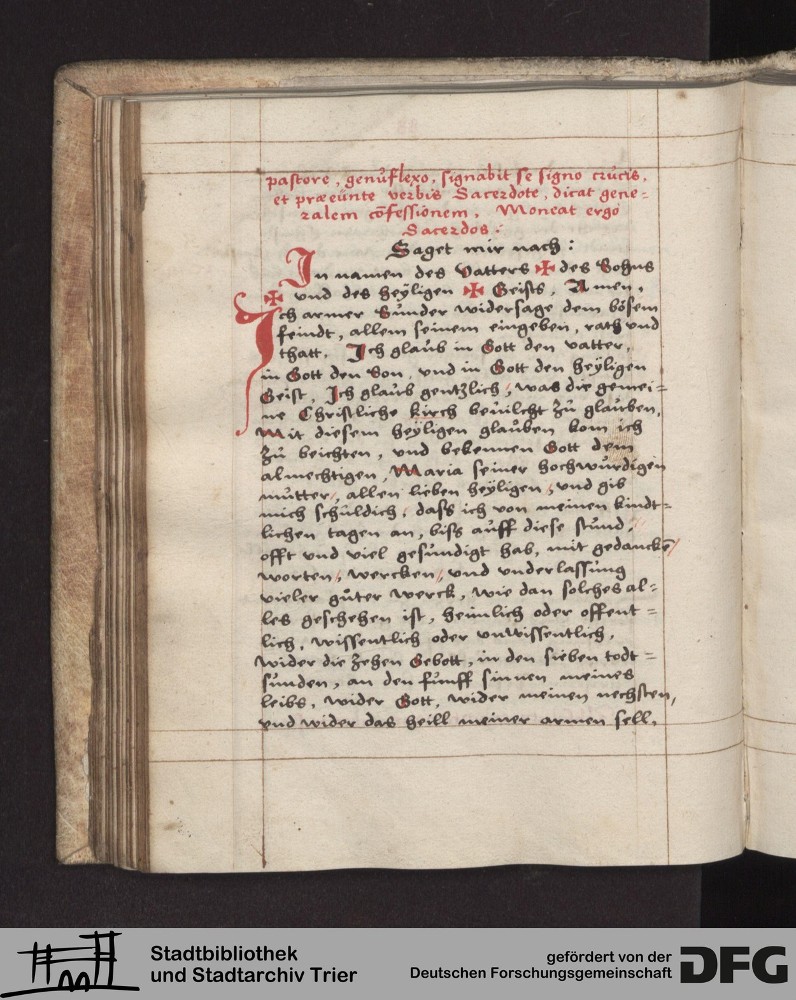 pastore, genuflexo, signabit se signo crucis,
et præeunte verbis Sacerdote, dicat gene=
ralem cōfessionem. Moneat ergo
Sacerdos:
Saget mir nach:
In namen des Vatters ✠ des Sohns
✠ vnd des heÿligen ✠ Geists, Amen.
Ich armer Sünder widersage dem bösem
feindt, allem seinem eingeben, rath vnd
thatt. Ich glaub in Gott den vatter,
in Gott den Son, vnd in Gott den heÿligen
Geist, Ich glaub gentzlich, was die gemei=
ne Christliche kirch bevilcht zu glauben,
Mit diesem heÿligen glauben kom ich
zu beichten, vnd bekennen Gott dem
almechtigen, Maria seiner hochwürdigen
mutter, allen lieben heÿligen, vnd gib
mich schuldich, dass ich von meinen kindt=
lichen tagen an, biss auff diese stund,
offt vnd viel gesundigt hab, mit gedanckē
worten, wercken, vnd vnderlassung
vieler guter werck, wie dan solches al=
les geschehen ist, heimlich oder offent=
lich, wissentlich oder vnwissentlich,
wider die zehen Gebott, in den sieben todt=
sunden, an den funff sinnen meines
leibs, wider Gott, wider meinen nechsten,
vnd wider das heill meiner armen sell,
Stadtbibliothek
und Stadtarchiv Trier
gefördert von der
Deutschen Forschungsgemeinschaft
DFG